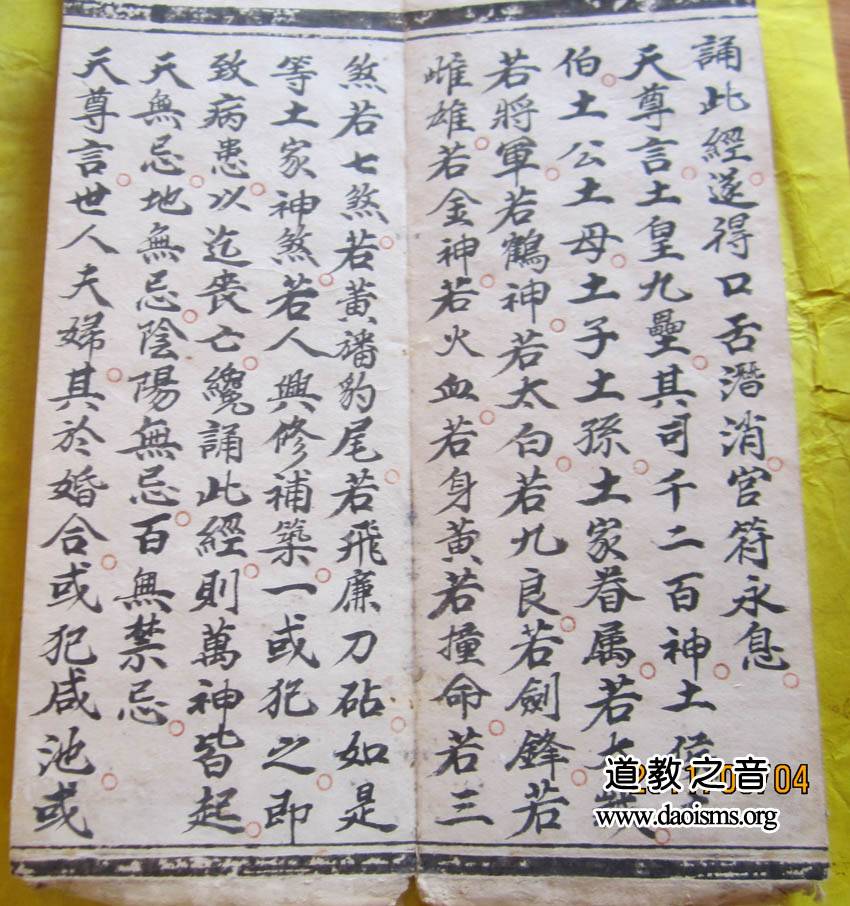 誦此經遂得口舌潛消官符永息
天尊言土皇九壘其司千二百神土侯
伯土公土母土子土孫土家眷属若太
若將軍若鶴神若太白若九良若劍鋒若
雌雄若金神若火血若身黄若撞命若三
煞若七煞若黄旛豹尾若飛廉刀砧如是
等土家神煞若人興修補築一或犯之即
致病患以迄喪亡纔誦此經則萬神皆起
天無忌地無忌陰陽無忌百無禁忌
天尊言世人夫婦其於婚合或犯咸池或
道教之音
www.daoisms.org
04